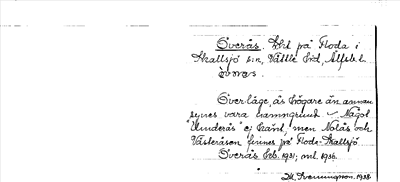 Överås. Lht på Floda i
Skallsjö sn, Vättle hd, Älfsb. l.
Överås läge, ås högare än annan
synes vara namngrund. – Något
"Underås" ej känt, men Nolås och
Västeråsen finnes på Floda. Skallsjö
Överås Eb. 1931; ml. 1936.
M. Svenungsson. 1938.